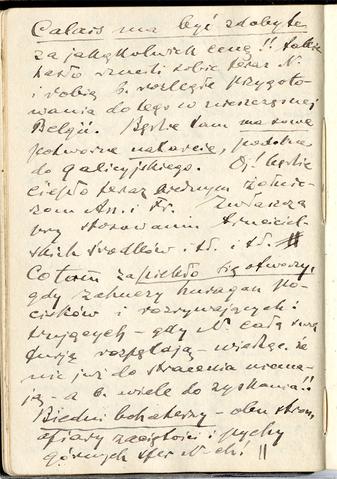 Calais ma być zdobyte
za jakąkolwiek cenę!! takie
hasło wznieśli sobie teraz N
i robią b. rozległe przygoto-
wania do tego w nieszczęsnej
Belgii. Będzie tam masowe
potworne natarcie, podobne
do galicyjskiego. Oj! będzie
ciepło teraz biednym żołnie-
rzom An. i Fr. Zwłaszcza
przy stosowaniu truciciel-
skich środków i t. d. i t. d.
Co tam za piekło się otworzy,
gdy zahuczy huragan po-
cisków i rozrywających i
trujących – gdy N całą swą
furję rozpętają – wiedząc że
nic już do stracenia nie ma-
ją – a b. wiele do zyskania!!
Biedni bohaterzy – obu stron
ofiary zaciętości i pychy
górnych sfer N-ch! !!